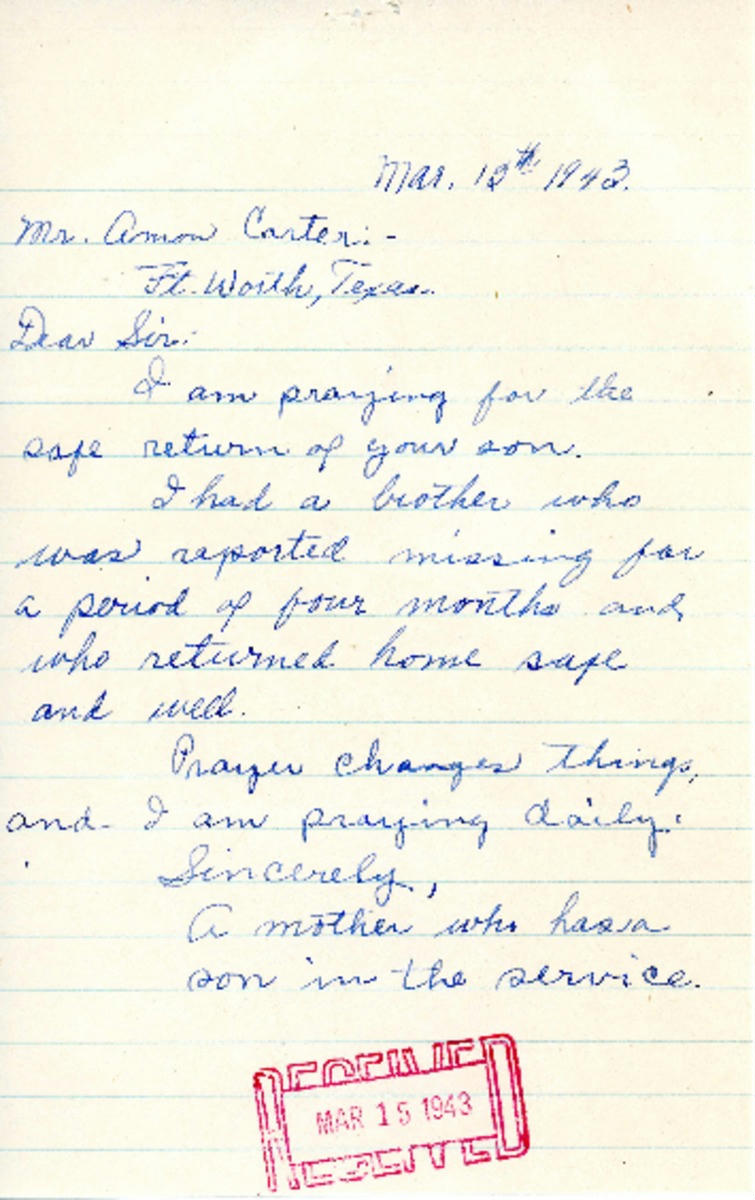 Mar. 12th 1943.
Mr. Amon Carter:-
Ft. Worth, Texas.
Dear Sir:
I am praying for the
safe return of your son.
I had a brother who
was reported missing for
a period of four months and
who returned home safe
and well.
Prayer changes things,
and I am praying daily.
Sincerely,
A mother who has a
son in the service.
RECEIVED
MAR 15 1943
RECEIVED